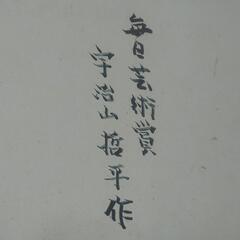 毎日芸術賞
宇治山哲平作